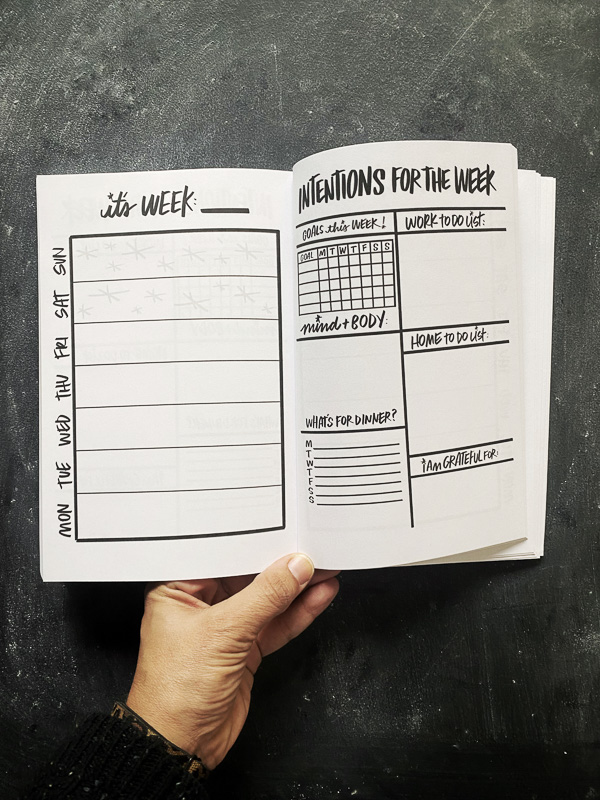 it's WEEK:
SUN
SAT
FRI
THU
WED
TUE
MON
INTENTIONS FOR THE WEEK
GOALS this WEEK!
GOAL M T W T F S S
mind + BODY:
WHAT'S FOR DINNER?
M
T
W
T
F
S
S
WORK TO DO LIST:
HOME TO DO LIST:
i AM GRATEFUL FOR: